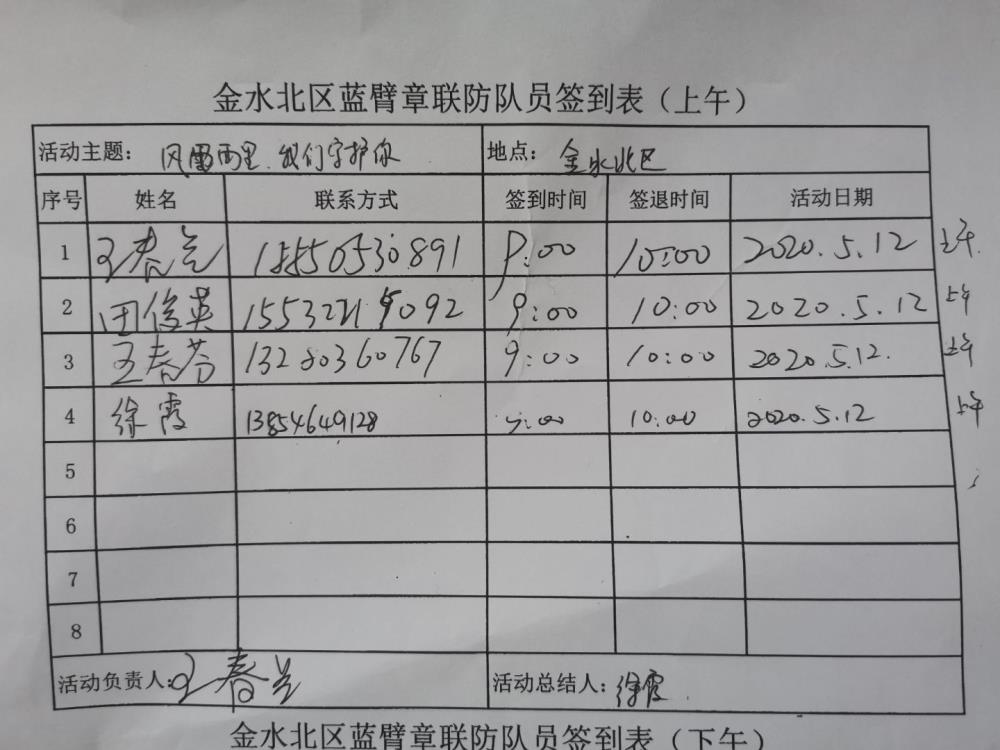 金水北区蓝臂章联防队员签到表（上午）
活动主题：风雷雨里、我们守护你 地点：金水北区
序号 姓名 联系方式 签到时间 签退时间 活动日期
1 王春兰 15550530891 9:00 10:00 2020.5.12 上午
2 田俊英 9:00 10:00 2020.5.12 上午
3 王春芬 13280360767 9:00 10:00 2020.5.12. 上午
4 徐霞 13854649128 9:00 10:00 2020.5.12 上午
5
6
7
8
活动负责人：王春兰 活动总结人：徐霞
金水北区蓝臂章联防队员签到表（下午）